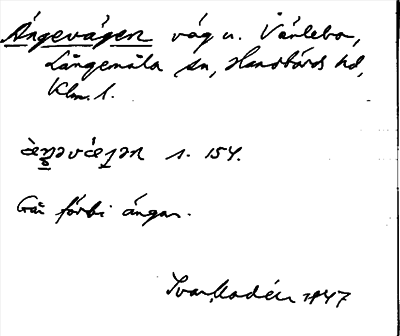 Ängevägen väg u. Värlebo,
Långemåla sn, Handbörds hd,
Klm. l.
s. 154.
Går förbi ängar.
Ivar Modéer 1947